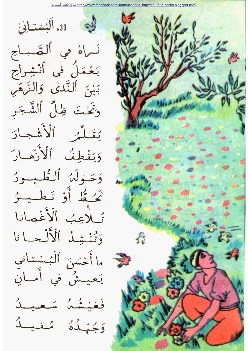 11. اَلْبُسْتَانِيّ
نَرَاهُ فِي الصَّبَاحِ
يَعْمَلُ فِي انْشِرَاحِ
بَيْنَ النَّدَى وَالزَّهْرِ
وَتَحْتَ ظِلِّ الشَّجَرِ
يُقَلِّمُ الْأَشْجَارَ
وَيَقْطِفُ الْأَزْهَارَ
وَحَوْلَهُ الطُّيُورُ
تَحُطُّ أَوْ تَطِيرُ
تُلَاعِبُ الْأَغْصَانَا
وَتُنْشِدُ الْأَلْحَانَا
مَا أَحْسَنَ الْبُسْتَانِي
يَعِيشُ فِي أَمَانِ
فَعَيْشُهُ سَعِيدُ
وَجُهْدُهُ مُفِيدُ